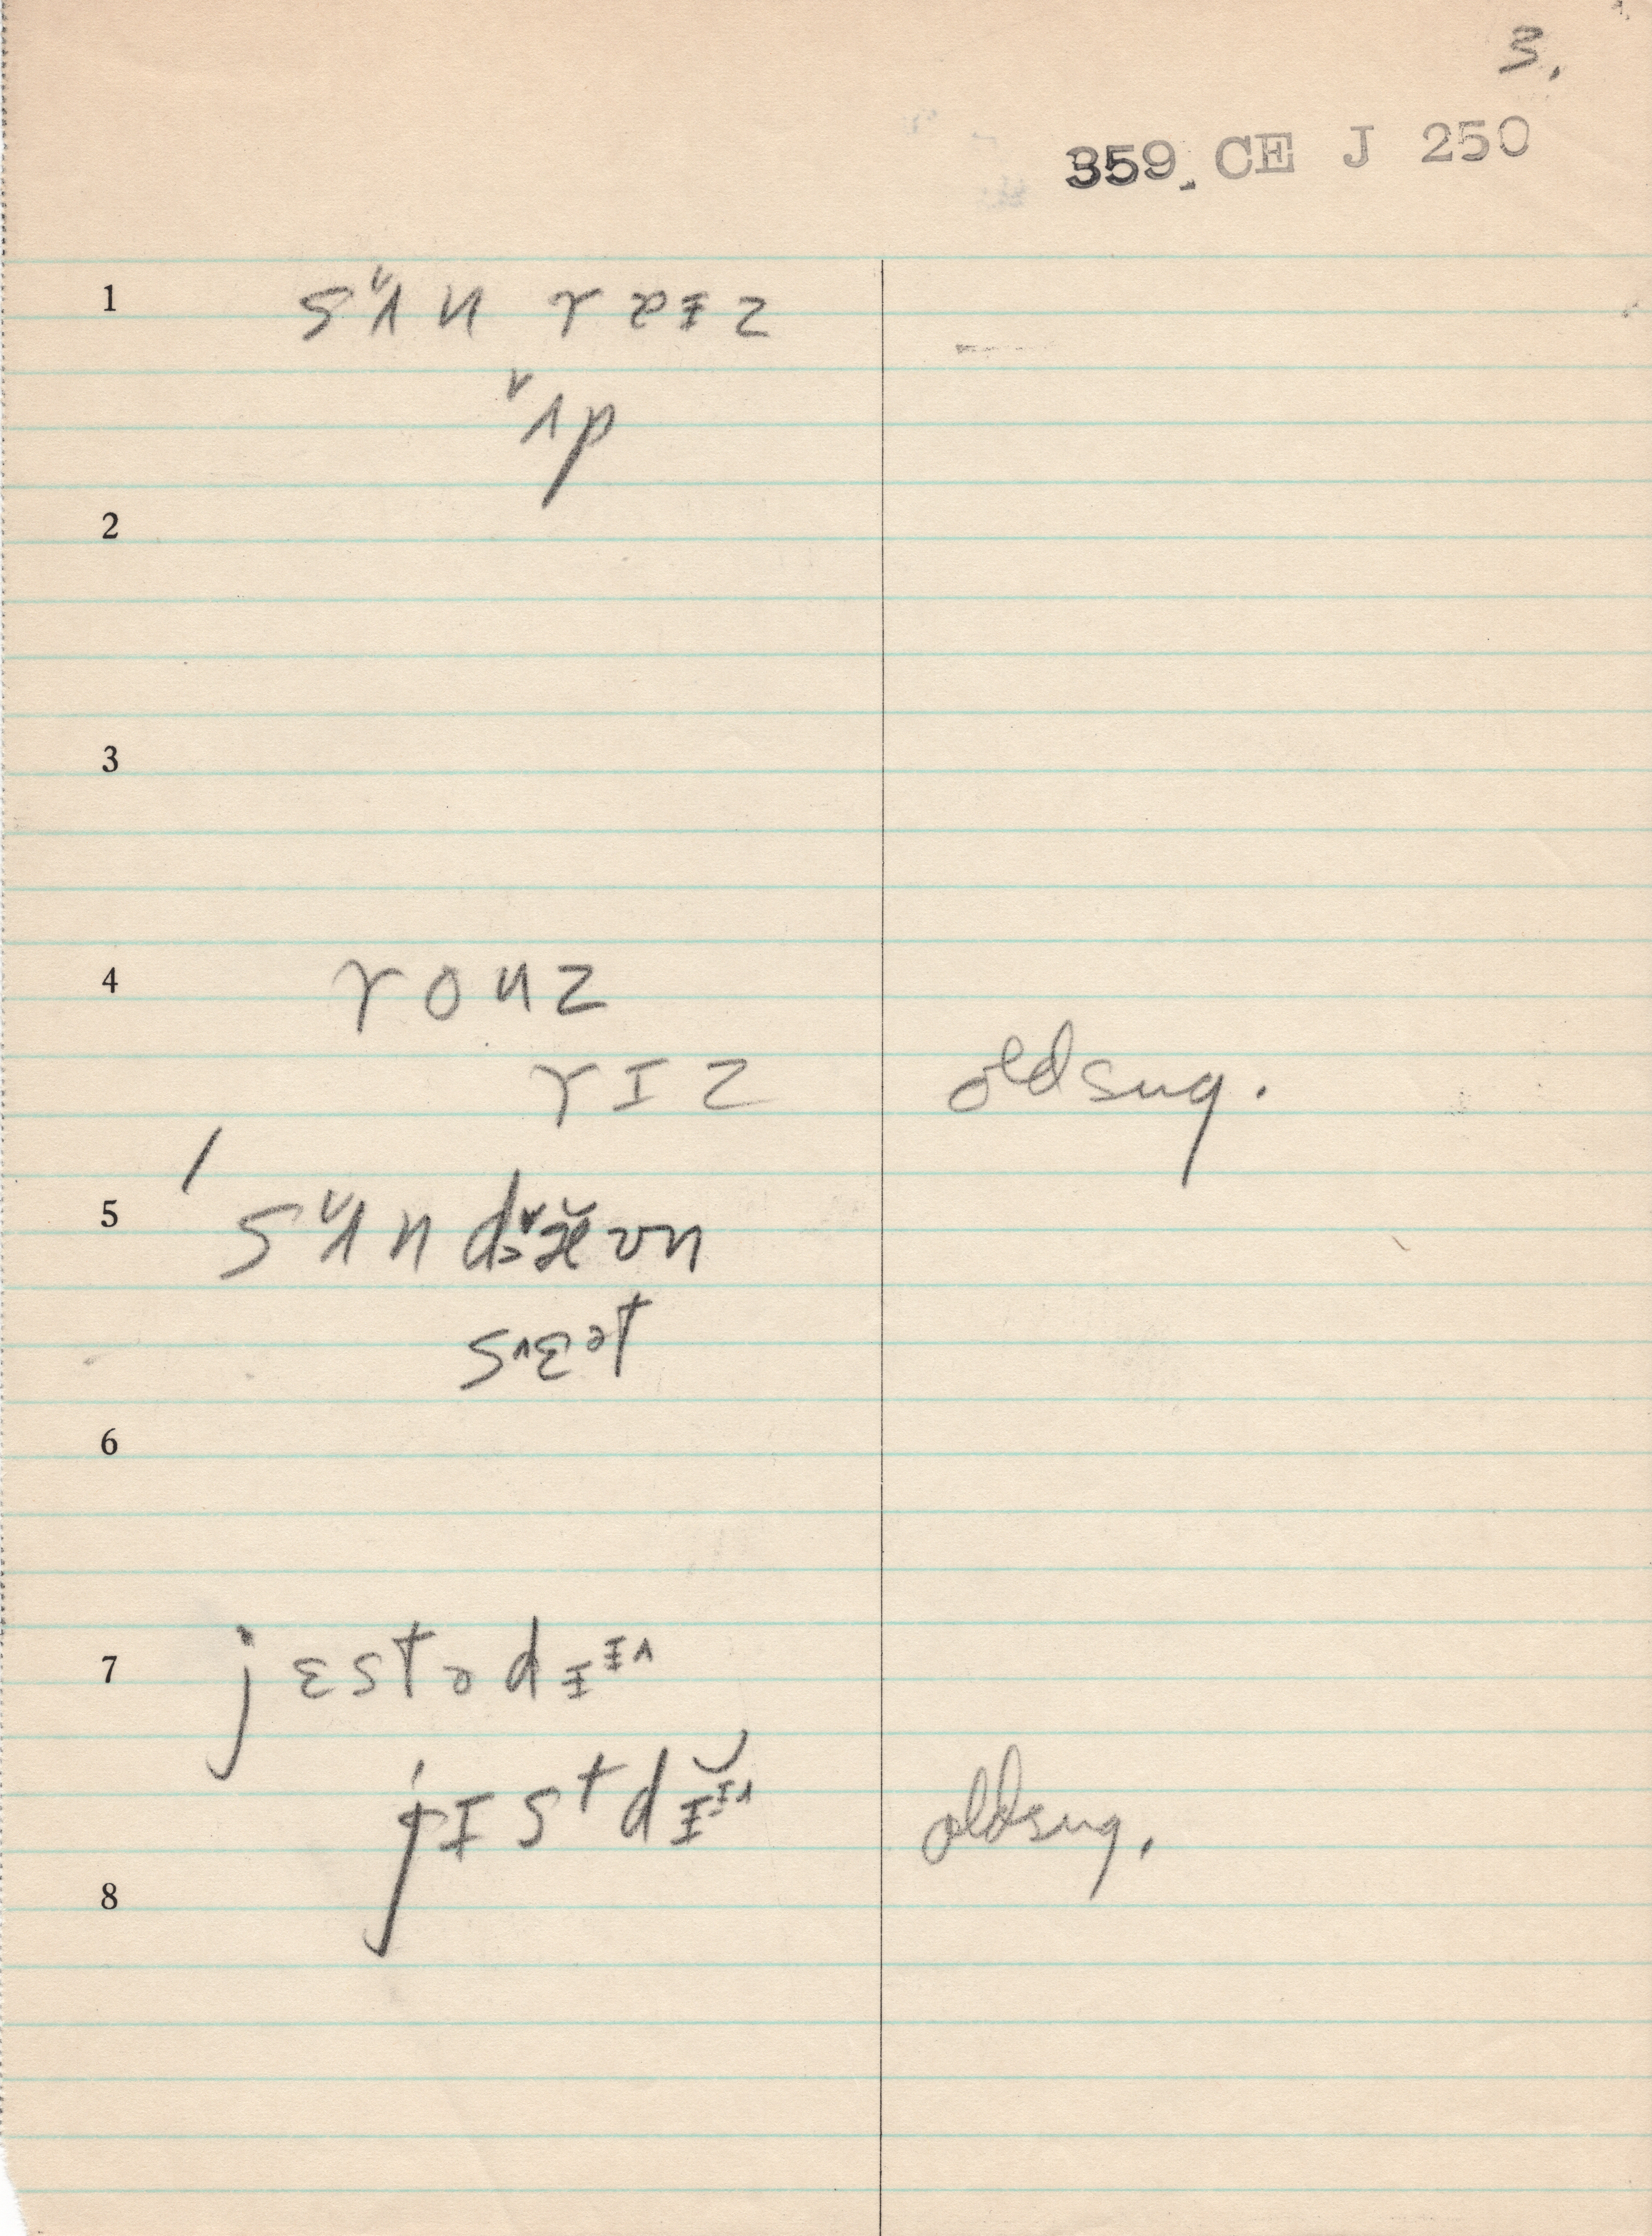 3.
359. CE J 250
1 sʌ̌n ræɪz
ʌ̌p
2
3
4 rouz
rɪz old sug.
/
5 sʌ̌n dæ̌ʊn
sɛət
6
7 jɛstədɪɪ^
jɪstdɪ̆ɪ^ old sug.
8